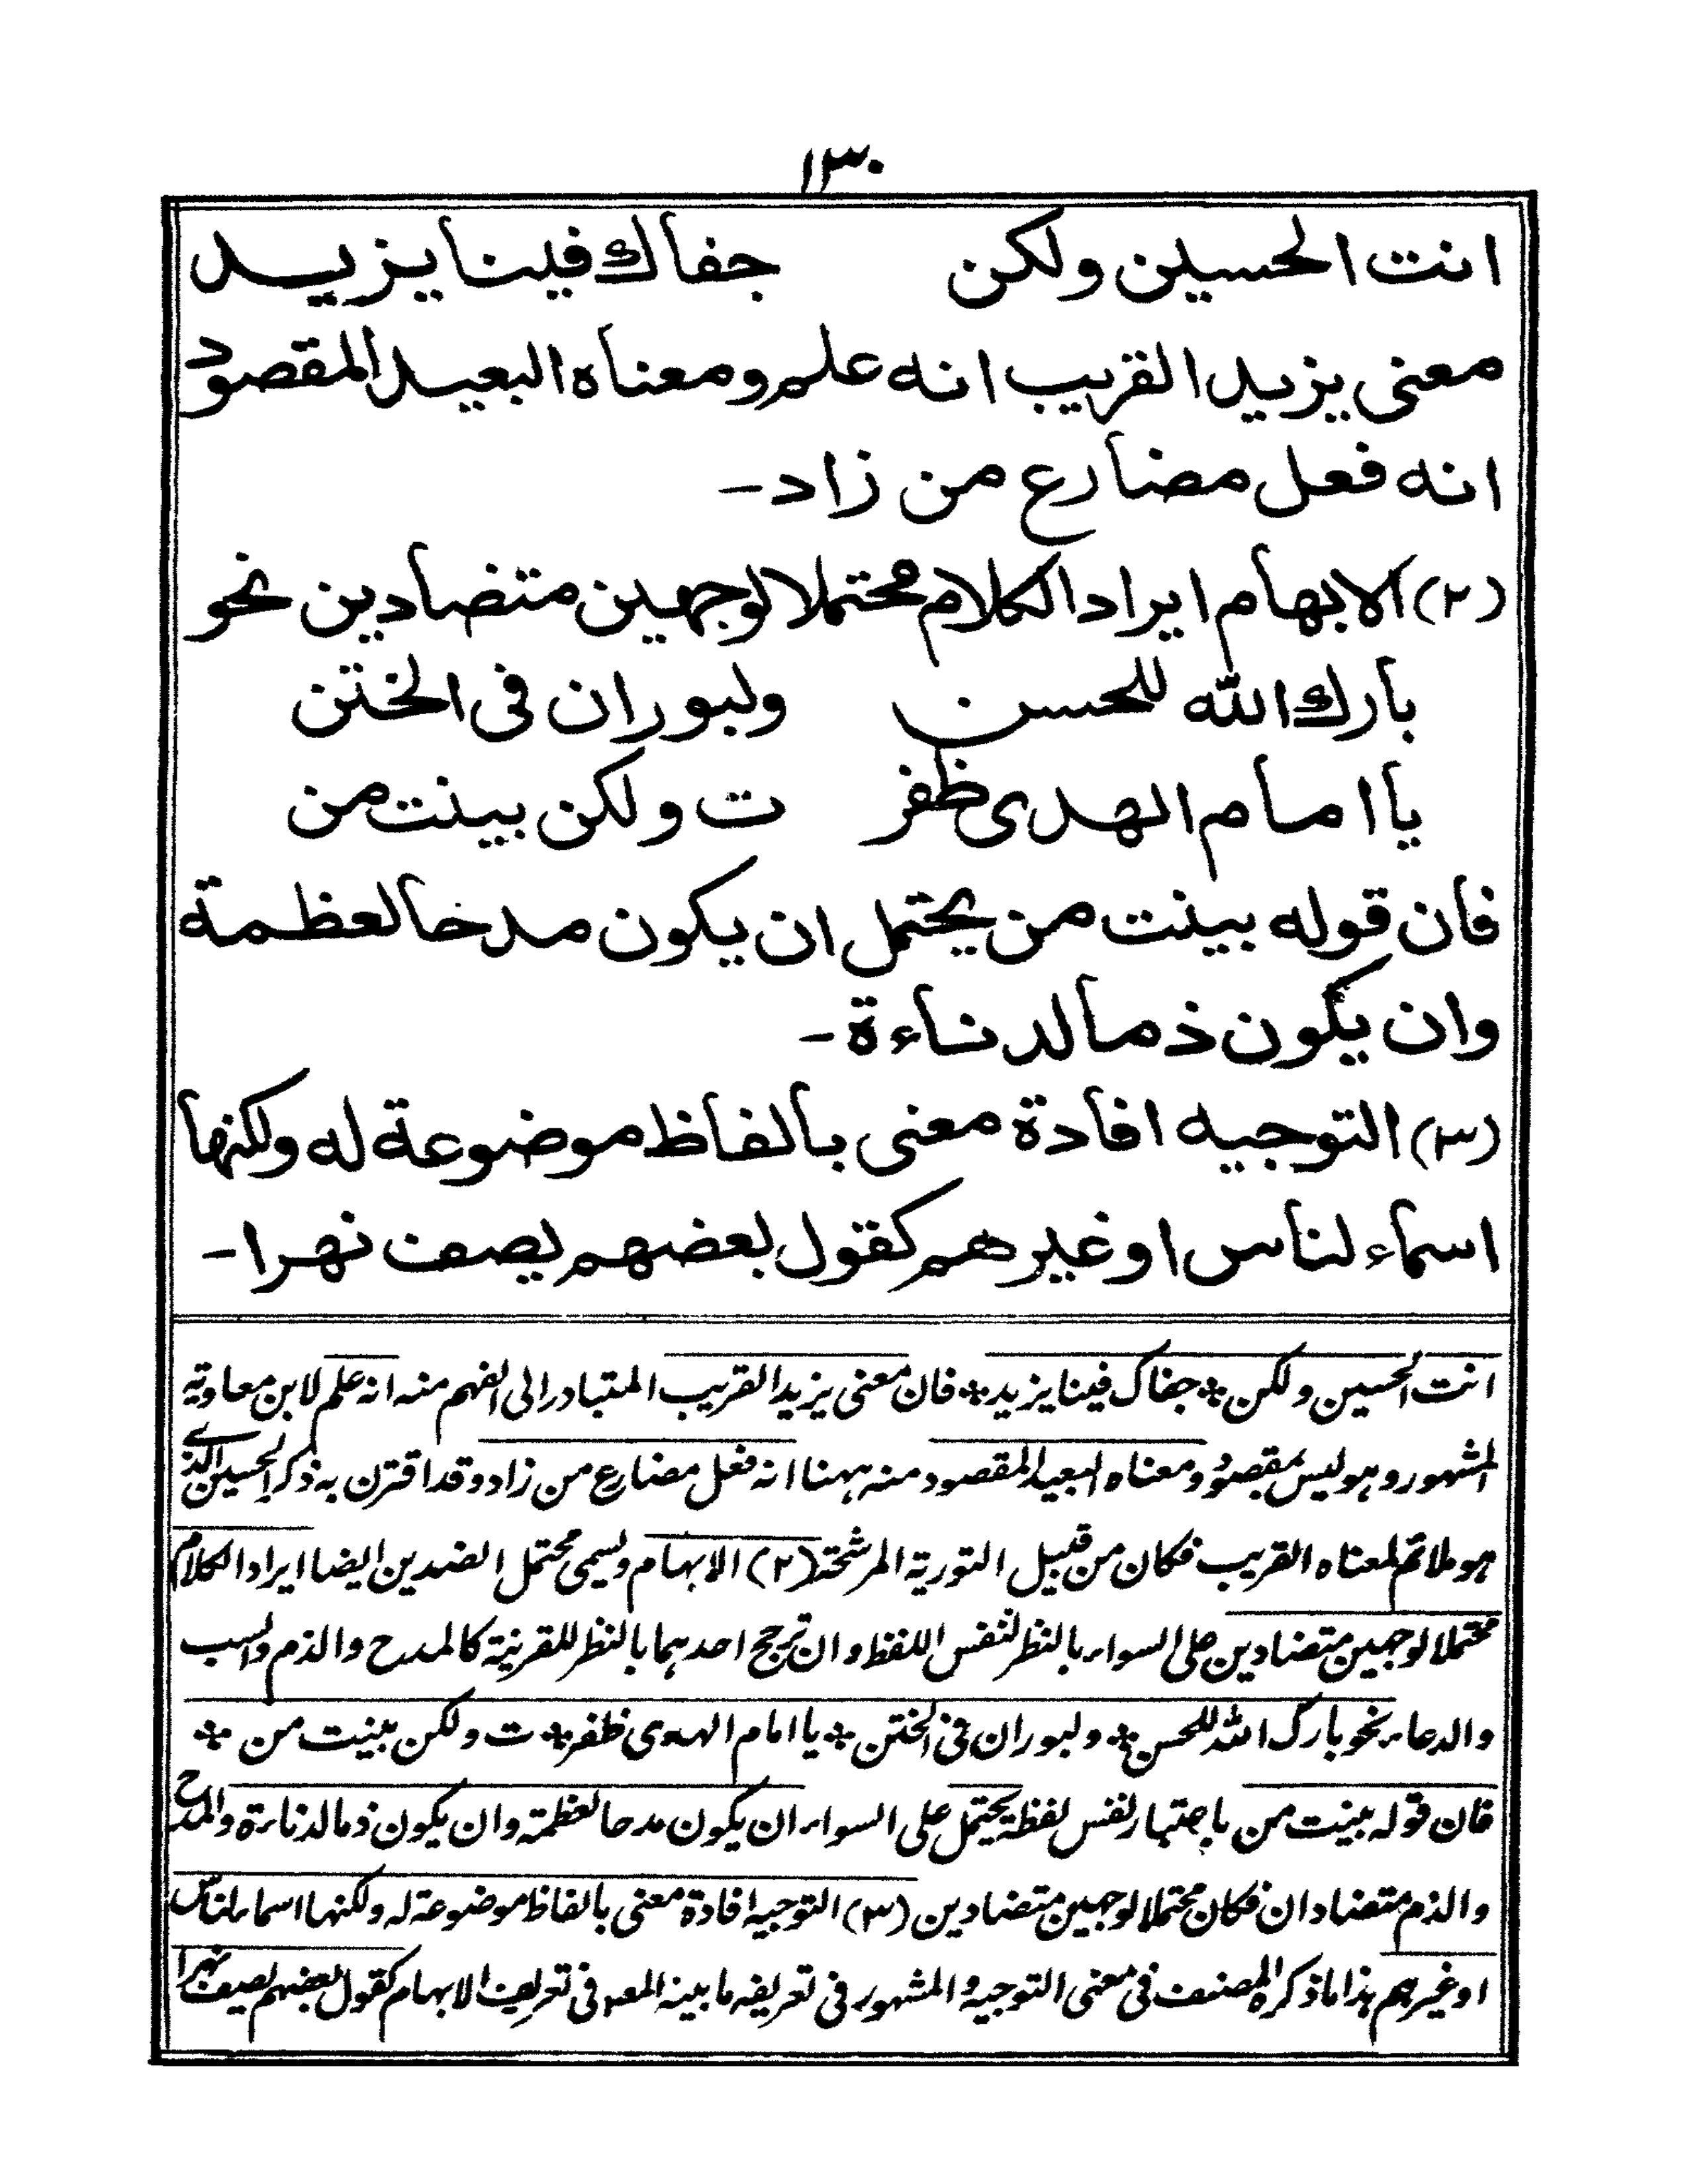 ١٣٠
انت الحسين ولكن جفاك فينا يزيد
معنى يزيد القريب انه علم ومعناه البعيد المقصود
انه فعل مضارع من زاد-
(٢) الابهام ايراد الكلام محتملا لوجهين متضادين نحو
بارك الله للحسن ولبوران فى الختن
يا امام الهدى ظفر ت ولكن ببنت من
فان قوله ببنت من يحتمل ان يكون مدحا لعظمة
وان يكون ذما لدناءة-
(٣) التوجيه افادة معنى بالفاظ موضوعة له ولكنها
اسماء لناس او غيرهم كقول بعضهم يصف نهرا-
انت الحسين ولكن * جفاك فينا يزيد * فان معنى يزيد القريب المتبادر الى الفهم منه انه علم لابن معاوية
المشهور وهو ليس بمقصود ومعناه البعيد المقصود منه ههنا انه فعل مضارع من زاد وقد اقترن به ذكر الحسين الذى
هو ملائم لمعناه القريب فكان من قبيل التورية المرشحة (٢) الابهام ويسمى محتمل الضدين ايضا ايراد الكلام
محتملا لوجهين متضادين على السواء بالنظر لنفس اللفظ وان ترجح احدهما بالنظر للقرينة كالمدح والذم والسب
والدعاء نحو بارك الله للحسن * ولبوران فى الختن * يا امام الهدى ظفر * ت ولكن ببنت من *
فان قوله ببنت من باعتبار نفس لفظة يحتمل على السواء ان يكون مدحا لعظمة وان يكون ذما لدناءة والمدح
والذم متضادان فكان محتملا لوجهين متضادين (٣) التوجيه افادة معنى بالفاظ موضوعة له ولكنها اسماء لناس
او غيرهم هذا ما ذكره المصنف فى معنى التوجيه والمشهور فى تعريفه ما بينه المص فى تعريف الابهام كقول بعضهم يصف نهرا